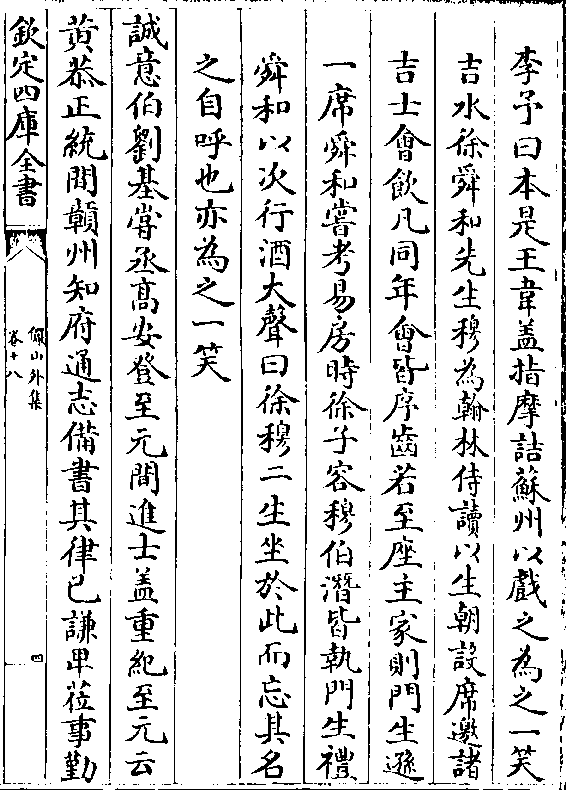 李予曰本是王韋盖指摩詰蘇州以戲之為之一笑
吉水徐舜和先生穆為翰林侍讀以生朝設席邀諸
吉士會飲凡同年會皆序齒若至座主家則門生遜
一席舜和嘗考易房時徐子容穆伯潛皆執門生禮
舜和以次行酒大聲曰徐穆二生坐於此而忘其名
之自呼也亦為之一笑
誠意伯劉基嘗丞髙安登至元間進士盖重紀至元云
黄㳟正統間贑州知府通志備書其律已謙卑莅事勤
欽定四庫全書
儼山外集
卷十八
四